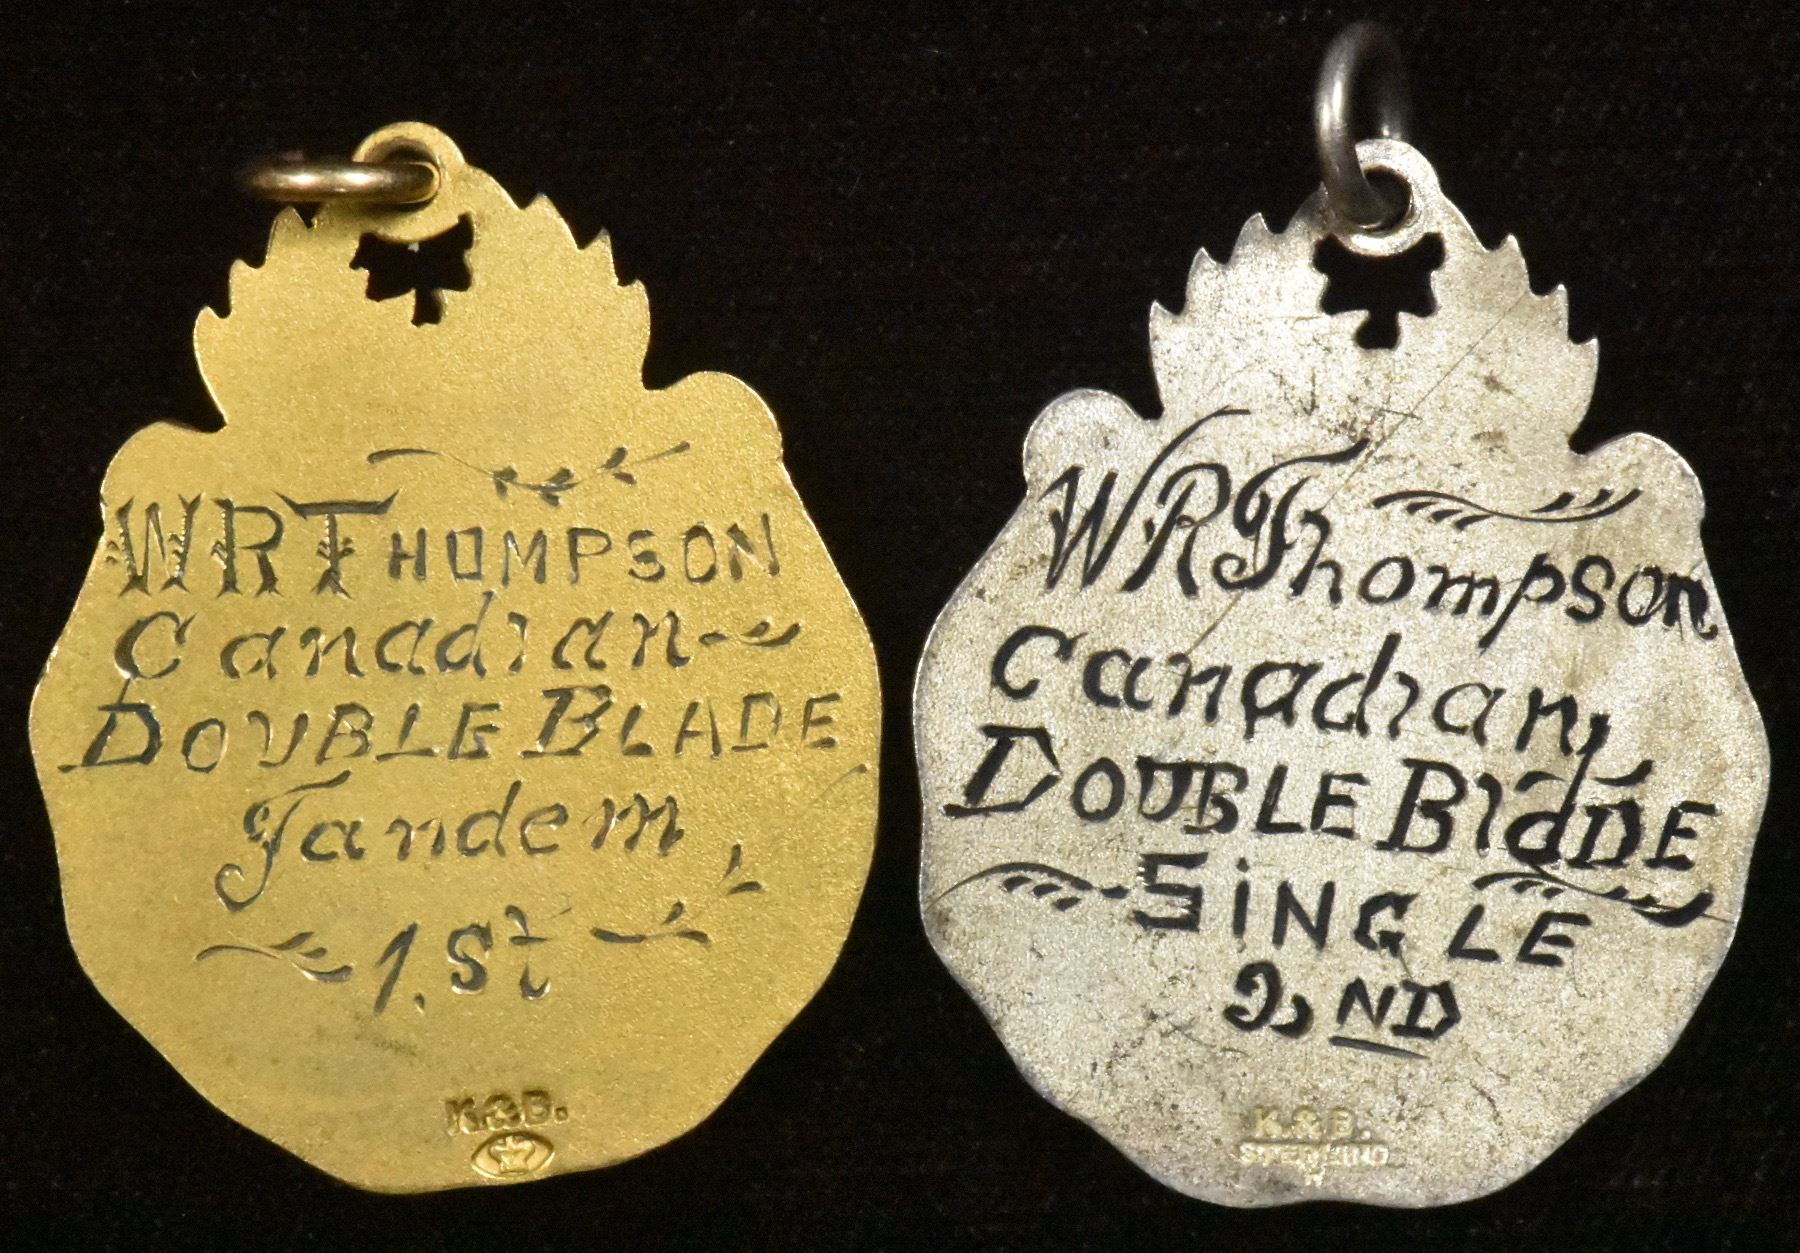 WRTHOMPSON
Canadian
DOUBLE BLADE
Tandem
1. St
K.&B.
WRThompson
Canadian,
DOUBLE BlaDE
SiNGLE
2, ND
K.&B.
STERLING